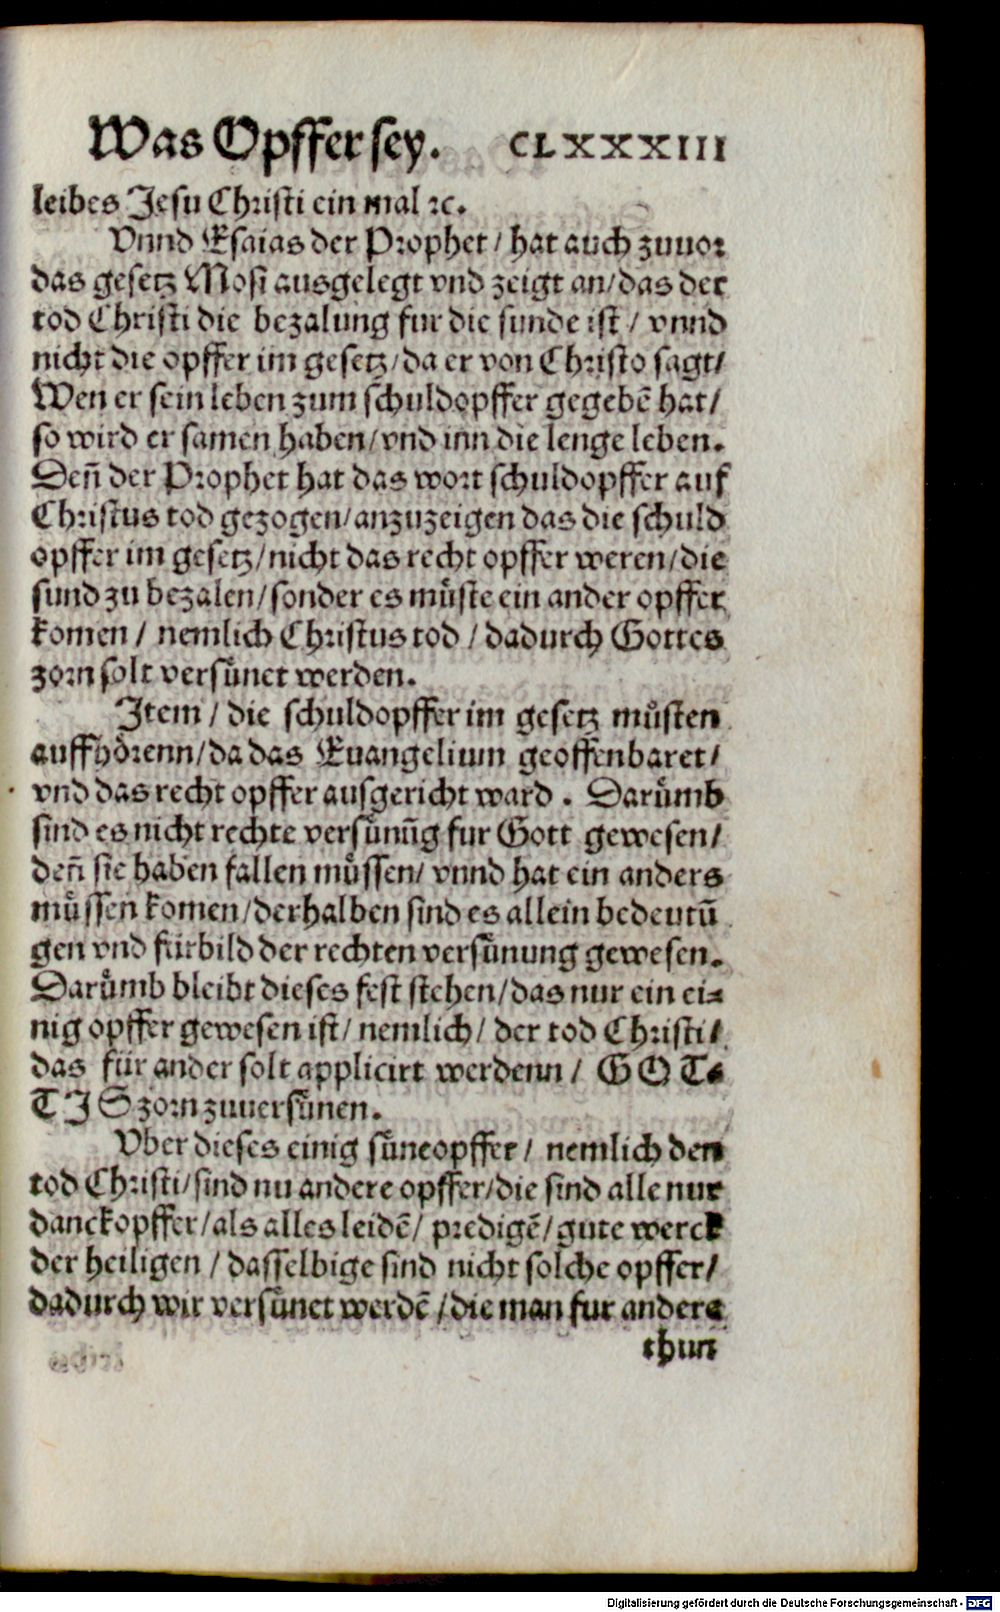 Was Opffer sey. CLXXXIII
leibes Jesu Christi ein mal ꝛc.
Vnnd Esaias der Prophet / hat auch zuuor
das gesetz Mosi ausgelegt vnd zeigt an/das der
tod Christi die bezalung fur die sunde ist / vnnd
nicht die opffer im gesetz/da er von Christo sagt/
Wen er sein leben zum schuldopffer gegebẽ hat/
so wird er samen haben/vnd inn die lenge leben.
Deñ der Prophet hat das wort schuldopffer auf
Christus tod gezogen/anzuzeigen das die schuld
opffer im gesetz/nicht das recht opffer weren/die
sund zu bezalen/sonder es muͤste ein ander opffer
komen / nemlich Christus tod / dadurch Gottes
zorn solt versuͤnet werden.
Item / die schuldopffer im gesetz muͤsten
auffhoͤrenn/da das Euangelium geoffenbaret/
vnd das recht opffer ausgericht ward . Daruͤmb
sind es nicht rechte versuͤnũg fur Gott gewesen/
deñ sie haben fallen muͤssen/ vnnd hat ein anders
muͤssen komen/derhalben sind es allein bedeutũ
gen vnd fürbild der rechten versuͤnung gewesen.
Daruͤmb bleibt dieses fest stehen/das nur ein ei⸗
nig opffer gewesen ist/ nemlich/ der tod Christi/
das für ander solt applicirt werdenn / GOT⸗
TIS zorn zuuersuͤnen.
Vber dieses einig suͤneopffer / nemlich den
tod Christi/sind nu andere opffer/die sind alle nur
danckopffer/als alles leidẽ/ predigẽ/gute werck
der heiligen / dasselbige sind nicht solche opffer/
dadurch wir versuͤnet werdẽ /die man fur andere
thun
Digitalisierung gefördert durch die Deutsche Forschungsgemeinschaft - DFG